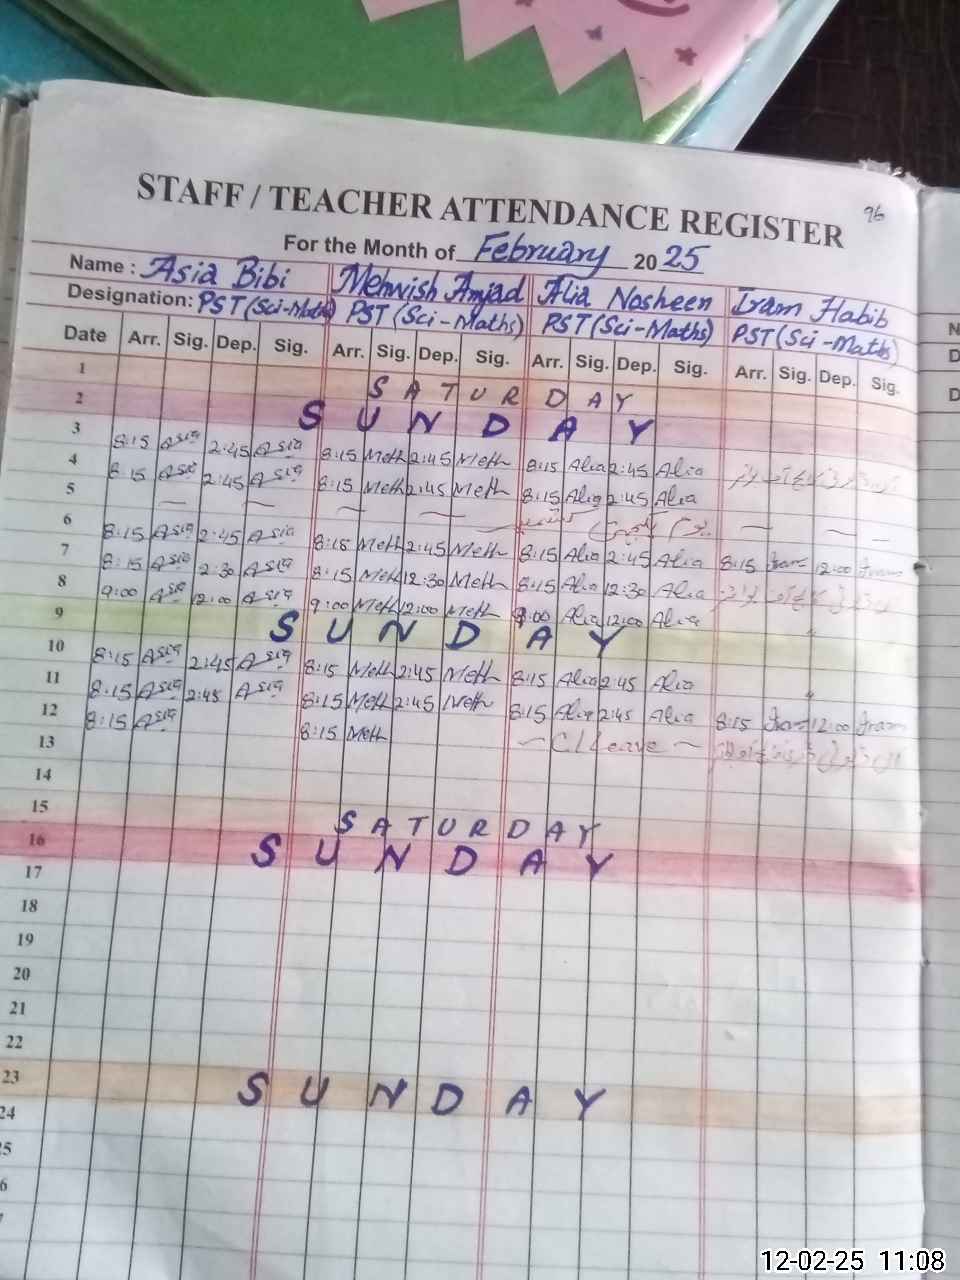 STAFF / TEACHER ATTENDANCE REGISTER 96
For the Month of February 2025
Name : Asia Bibi Mehwish Amjad Alia Nosheen Iram Habib
Designation: PST (Sci-Math) PST (Sci-Maths) PST (Sci-Maths) PST (Sci-Maths)
Date Arr. Sig. Dep. Sig. Arr. Sig. Dep. Sig. Arr. Sig. Dep. Sig. Arr. Sig. Dep. Sig.
1 SATURDAY
2 SUNDAY
3 8:15 Asia 2:45 Asia 8:15 Meh 2:45 Meh 8:15 Alia 2:45 Alia
4 8:15 Asia 2:45 Asia 8:15 Meh 2:45 Meh 8:15 Alia 2:45 Alia
5 — — — — یوم یکجہتی کشمیر — — —
6 8:15 Asia 2:45 Asia 8:15 Meh 2:45 Meh 8:15 Alia 2:45 Alia 8:15 Iram 12:00 Iram
7 8:15 Asia 2:30 Asia 8:15 Meh 12:30 Meh 8:15 Alia 12:30 Alia
8 9:00 Asia 12:00 Asia 9:00 Meh 12:00 Meh 9:00 Alia 12:00 Alia
9 SUNDAY
10 8:15 Asia 2:45 Asia 8:15 Meh 2:45 Meh 8:15 Alia 2:45 Alia
11 8:15 Asia 2:45 Asia 8:15 Meh 2:45 Meh 8:15 Alia 2:45 Alia 8:15 Iram 12:00 Iram
12 8:15 Asia 8:15 Meh — C/Leave —
13
14
15 SATURDAY
16 SUNDAY
17
18
19
20
21
22
23 SUNDAY
24
12-02-25 11:08